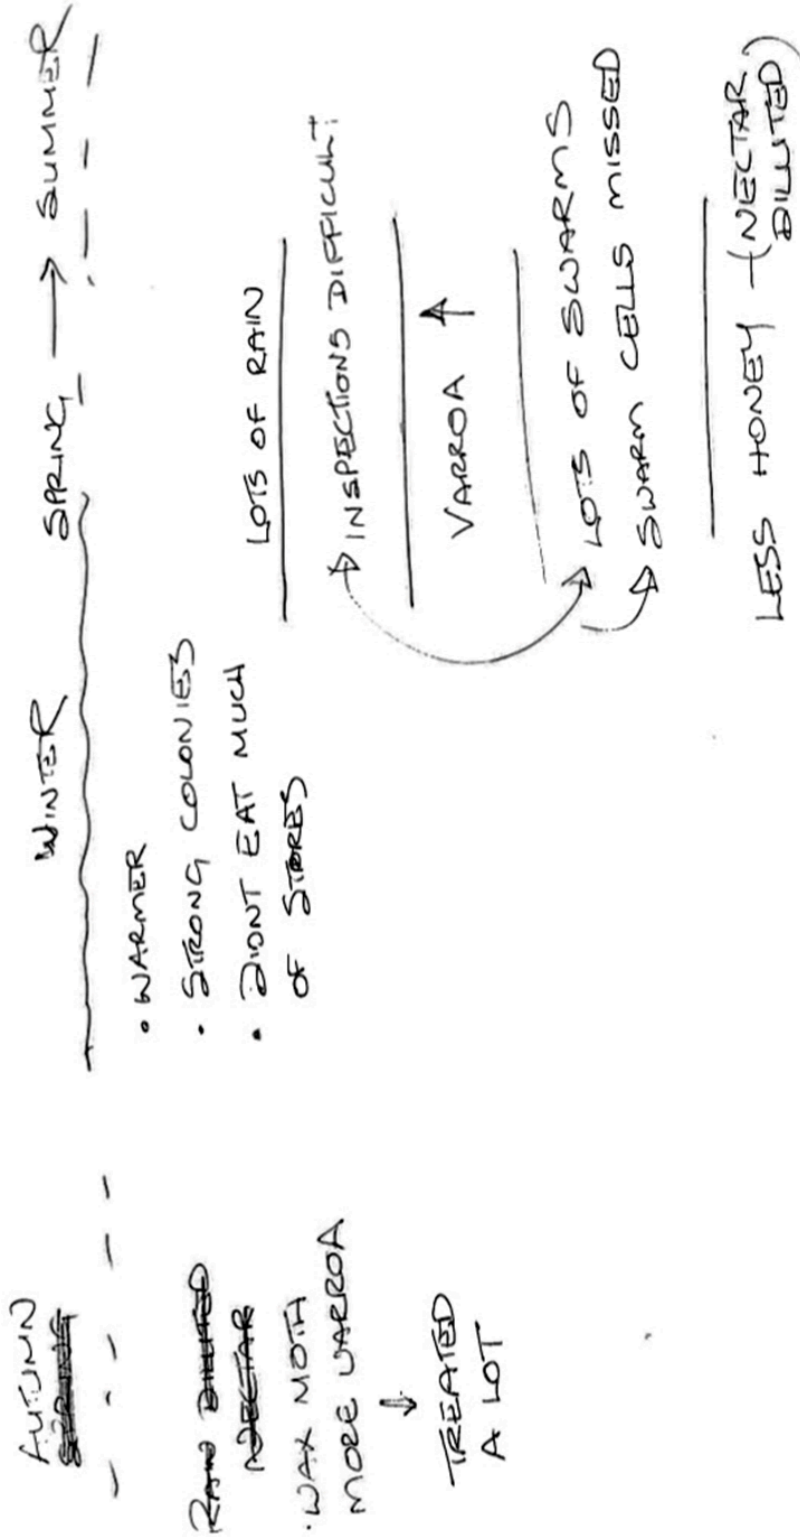 AUTUMN
SPRING
RAIN DILUTED
NECTAR
· WAX MOTH
MORE VARROA
↓
TREATED
A LOT
WINTER
· WARMER
· STRONG COLONIES
· DIDNT EAT MUCH
OF STORES
SPRING → SUMMER
LOTS OF RAIN
INSPECTIONS DIFFICULT!
VARROA ↑
LOTS OF SWARMS
SWARM CELLS MISSED
LESS HONEY - (NECTAR
DILUTED)